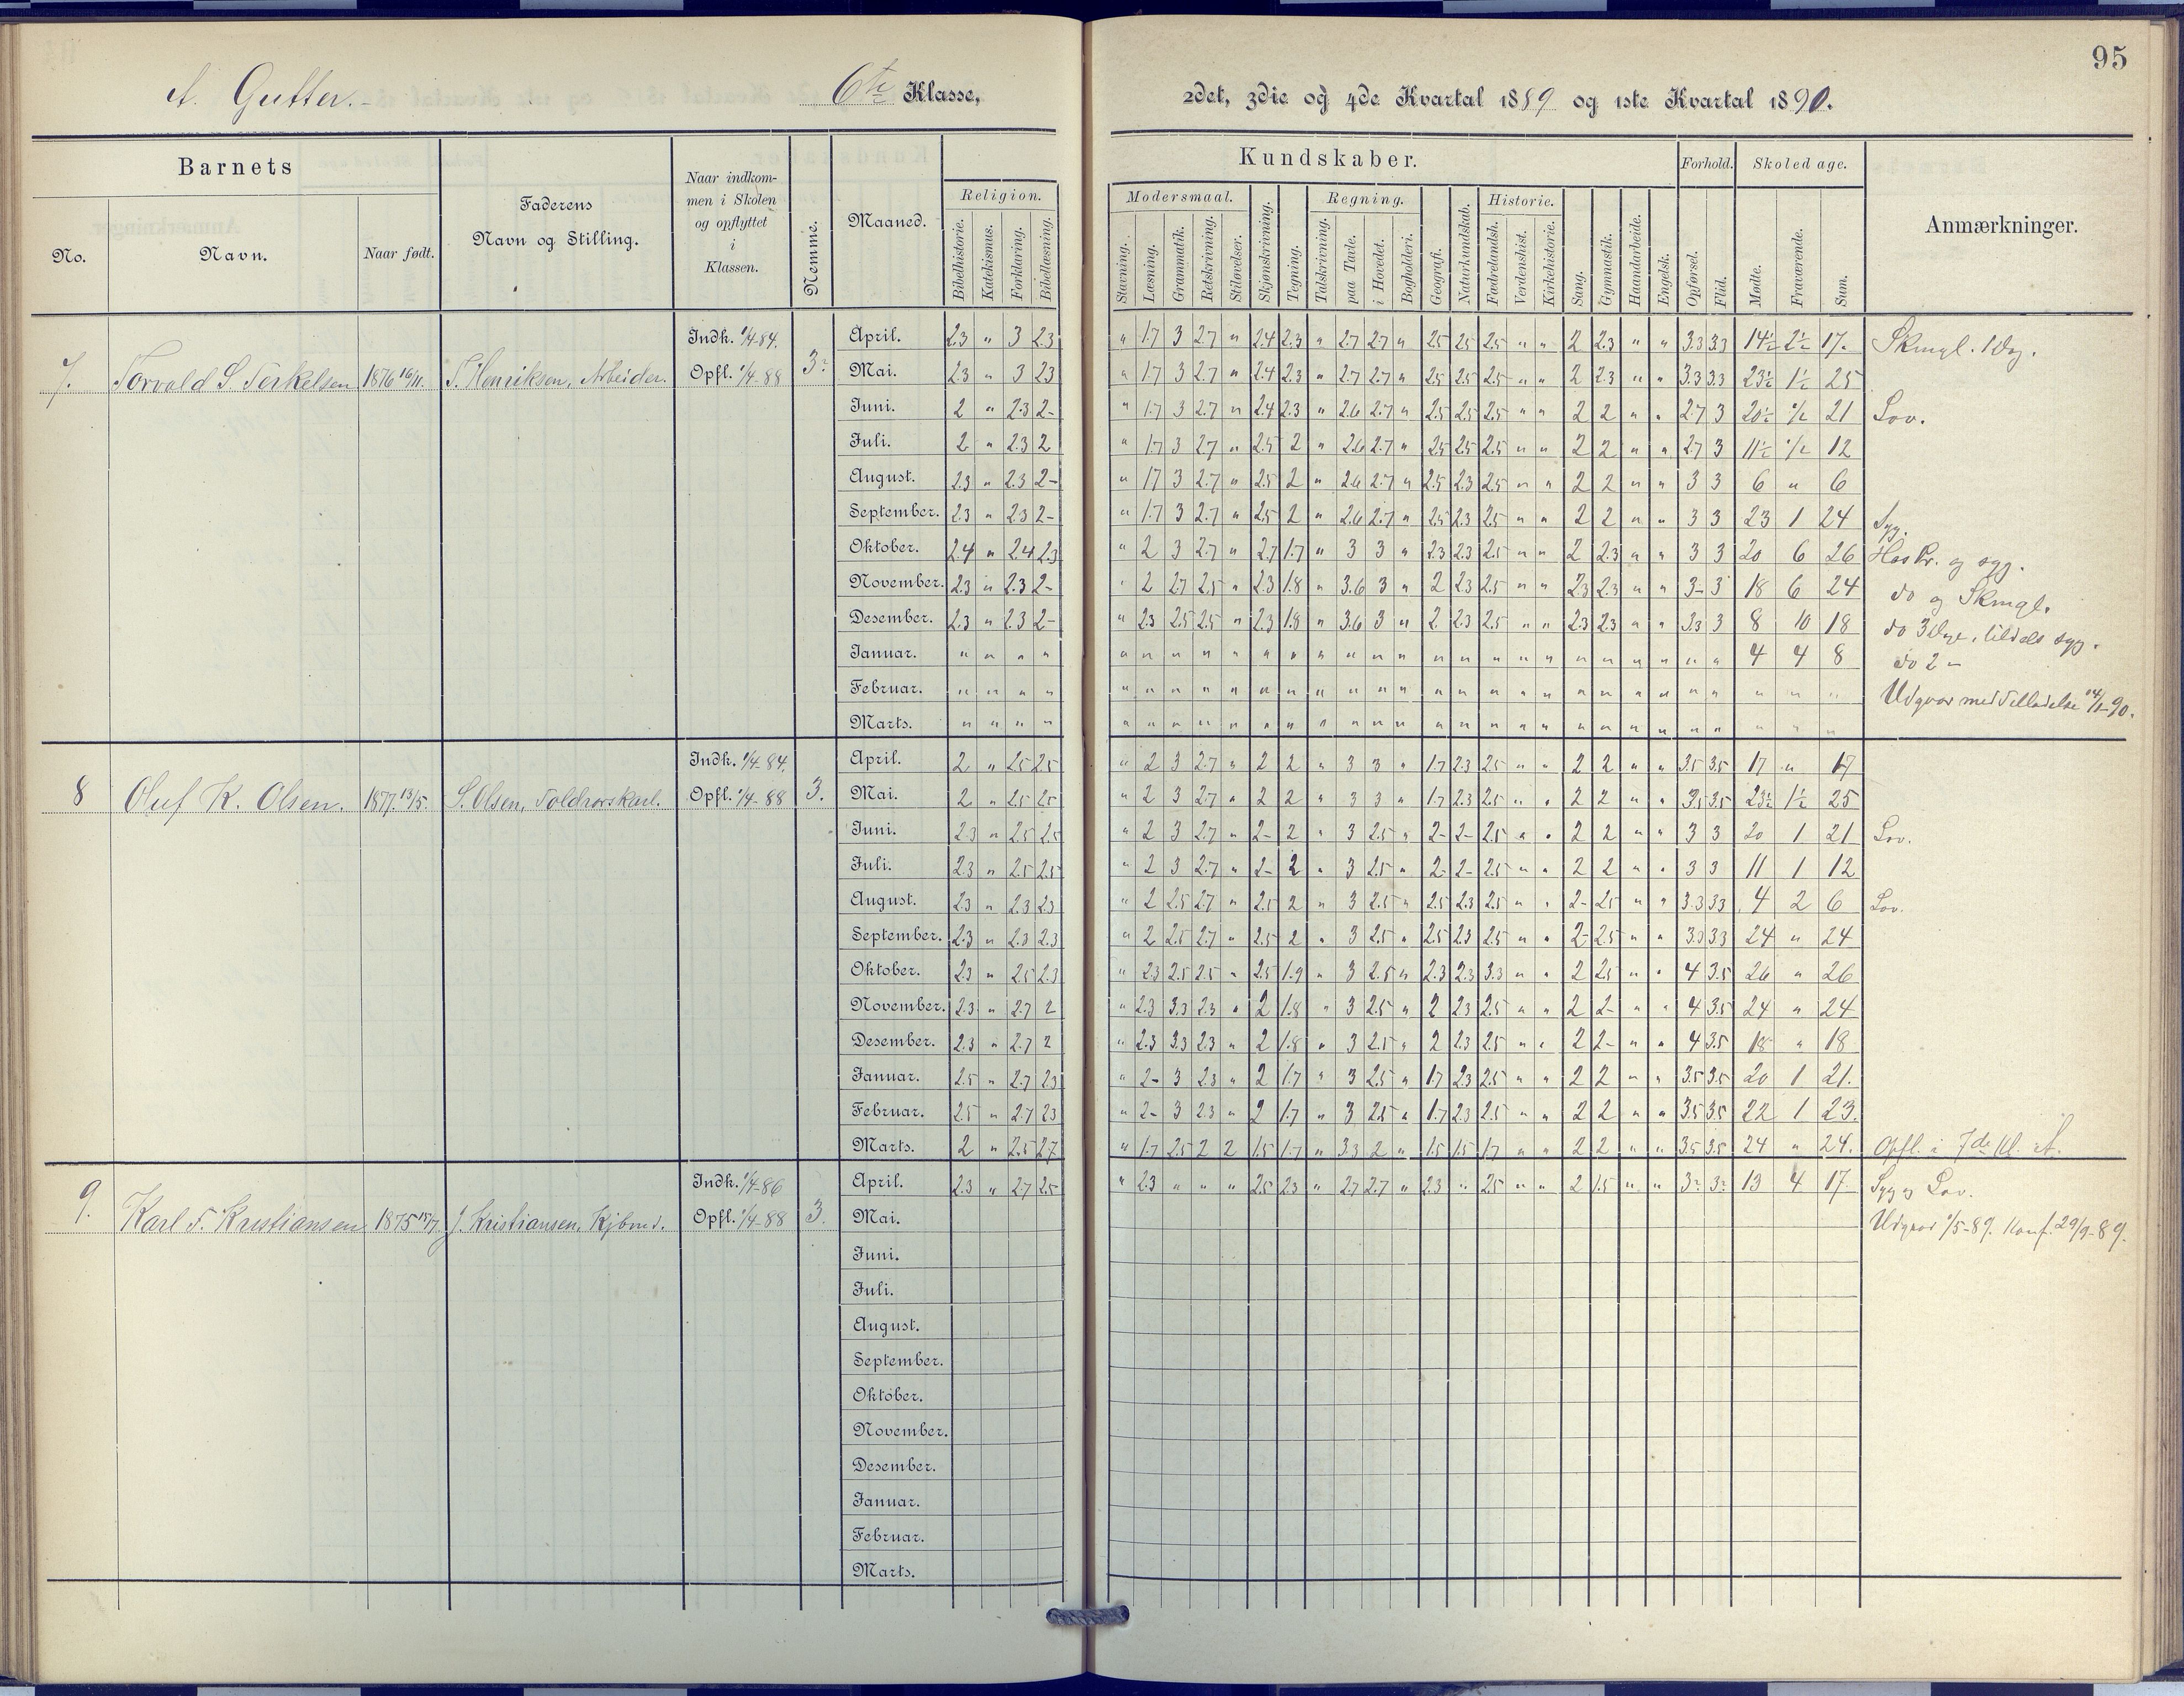 95
A. Gutter.- 6te Klasse, 2det, 3die og 4de Kvartal 1889 og 1ste Kvartal 1890.
Barnets
No. Navn. Naar født.
Faderens
Navn og Stilling.
Naar indkom-
men i Skolen
og opflyttet
i
Klassen.
Nemme.
Maaned.
Kundskaber.
Religion.
Bibelhistorie. Katekismus. Forklaring. Bibellæsning.
Modersmaal.
Stavning. Læsning. Grammatik. Retskrivning. Stiløvelser.
Skjønskrivning. Tegning.
Regning.
Talskrivning. paa Tavle. i Hovedet. Bogholderi.
Geografi. Naturkundskab.
Historie.
Fædrelandsh. Verdenshist. Kirkehistorie.
Sang. Gymnastik. Haandarbeide. Engelsk.
Forhold.
Opførsel. Flid.
Skoledage.
Mødte. Fraværende. Sum.
Anmærkninger.
7. Torvald S Terkelsen 1876 16/11. T. Henriksen, Arbeider. Indk. 1/4 84. Opfl. 1/4-88 3
April. 2.3 " 3 2.3 " 1.7 3 2.7 " 2.4 2.3 " 2.7 2.7 " 2.5 2.5 2.5 " " 2 2.3 " " 3.3 3.3 14½ 2½ 17. Skmgl. 1 Dag.
Mai. 2.3 " 3 2.3 " 1.7 3 2.7 " 2.4 2.3 " 2.7 2.7 " 2.5 2.5 2.5 " " 2 2.3 " " 3.3 3.3 23½ 1½ 25
Juni. 2 " 2.3 2- " 1.7 3 2.7 " 2.4 2.3 " 2.6 2.7 " 2.5 2.5 2.5 " " 2 2 " " 2.7 3 20½ 1/2 21 Lov.
Juli. 2 " 2.3 2 " 1.7 3 2.7 " 2.5 2 " 2.6 2.7 " 2.5 2.5 2.5 " " 2 2 " " 2.7 3 11½ 1/2 12
August. 2.3 " 2.3 2- " 1.7 3 2.7 " 2.5 2 " 2.6 2.7 " 2.5 2.3 2.5 " " 2 2 " " 3 3 6 " 6
September. 2.3 " 2.3 2- " 1.7 3 2.7 " 2.5 2 " 2.6 2.7 " 2.5 2.3 2.5 " " 2 2 " " 3 3 23 1 24 Syg.
Oktober. 2.4 " 2.4 2.3 " 2 3 2.7 " 2.7 1.7 " 3 3 " 2.3 2.3 2.5 " " 2 2.3 " " 3 3 20 6 26 Hos Pr. og syg.
November. 2.3 " 2.3 2- " 2 2.7 2.5 " 2.3 1.8 " 3.6 3 " 2 2.3 2.5 " " 2.3 2.3 " " 3- 3 18 6 24 do og Skmgl.
Desember. 2.3 " 2.3 2- " 2.3 2.5 2.5 " 2.3 1.8 " 3.6 3 " 2 2.3 2.5 " " 2.3 2.3 " " 3.3 3 8 10 18 do 3 Dge, tildels syg.
Januar. " " " " " " " " " " " " " " " " " " " " " " " " " " 4 4 8 do 2 -
Februar. " " " " " " " " " " " " " " " " " " " " " " " " " " " " " Udgaar med Tilladelse 14/1-90.
Marts. " " " " " " " " " " " " " " " " " " " " " " " " " " " " "
8 Oluf K. Olsen. 1877. 13/5. S. Olsen, Toldrorskarl. Indk. 1/4-84. Opfl. 1/4-88 3.
April. 2 " 2.5 2.5 " 2 3 2.7 " 2 2 " 3 3 " 1.7 2.3 2.5 " " 2 2 " " 3.5 3.5 17 " 17
Mai. 2 " 2.5 2.5 " 2 3 2.7 " 2 2 " 3 3 " 1.7 2.3 2.5 " " 2 2 " " 3.5 3.5 23½ 1½ 25
Juni. 2.3 " 2.5 2.5 " 2 3 2.7 " 2- 2 " 3 2.5 " 2- 2- 2.5 " " 2 2 " " 3 3 20 1 21 Lov.
Juli. 2.3 " 2.5 2.5 " 2 3 2.7 " 2- 2 " 3 2.5 " 2- 2- 2.5 " " 2 2 " " 3 3 11 1 12
August. 2.3 " 2.3 2.3 " 2 2.5 2.7 " 2.5 2 " 3 2.5 " 2.5 2.3 2.5 " " 2- 2.5 " " 3.3 3.3 4 2 6 Lov.
September. 2.3 " 2.3 2.3 " 2 2.5 2.7 " 2.5 2 " 3 2.5 " 2.5 2.3 2.5 " " 2- 2.5 " " 3.3 3.3 24 " 24
Oktober. 2.3 " 2.5 2.3 " 2.3 2.5 2.5 " 2.5 1.9 " 3 2.5 " 2.3 2.3 3.3 " " 2 2.5 " " 4 3.5 26 " 26
November. 2.3 " 2.7 2 " 2.3 3.3 2.3 " 2 1.8 " 3 2.5 " 2 2.3 2.5 " " 2 2- " " 4 3.5 24 " 24
Desember. 2.3 " 2.7 2 " 2.3 3.3 2.3 " 2 1.8 " 3 2.5 " 2 2.3 2.5 " " 2 2- " " 4 3.5 18 " 18
Januar. 2.5 " 2.7 2.3 " 2- 3 2.3 " 2 1.7 " 3 2.5 " 1.7 2.3 2.5 " " 2 2 " " 3.5 3.5 20 1 21.
Februar. 2.5 " 2.7 2.3 " 2- 3 2.3 " 2 1.7 " 3 2.5 " 1.7 2.3 2.5 " " 2 2 " " 3.5 3.5 22 1 23.
Marts. 2 " 2.5 2.7 " 1.7 2.5 2 2 1.5 1.7 " 3.3 2 " 1.5 1.5 1.7 " " 2 2 " " 3.5 3.5 24 " 24. Opfl. i 7de Kl. A.
9. Karl T. Kristiansen 1875 15/7. J. Kristiansen, Kjbmd. Indk. 1/4-86 Opfl. 1/4-88 3.
April. 2.3 " 2.7 2.5 " 2.3 " " " 2.5 2.3 " 2.7 2.7 " 2.3 " 2.5 " " 2 1.5 " " 3 3 13 4 17 Syg og Lov.
Mai. Udgaar 1/5-89. Konf. 29/9-89.
Juni.
Juli.
August.
September.
Oktober.
November.
Desember.
Januar.
Februar.
Marts.